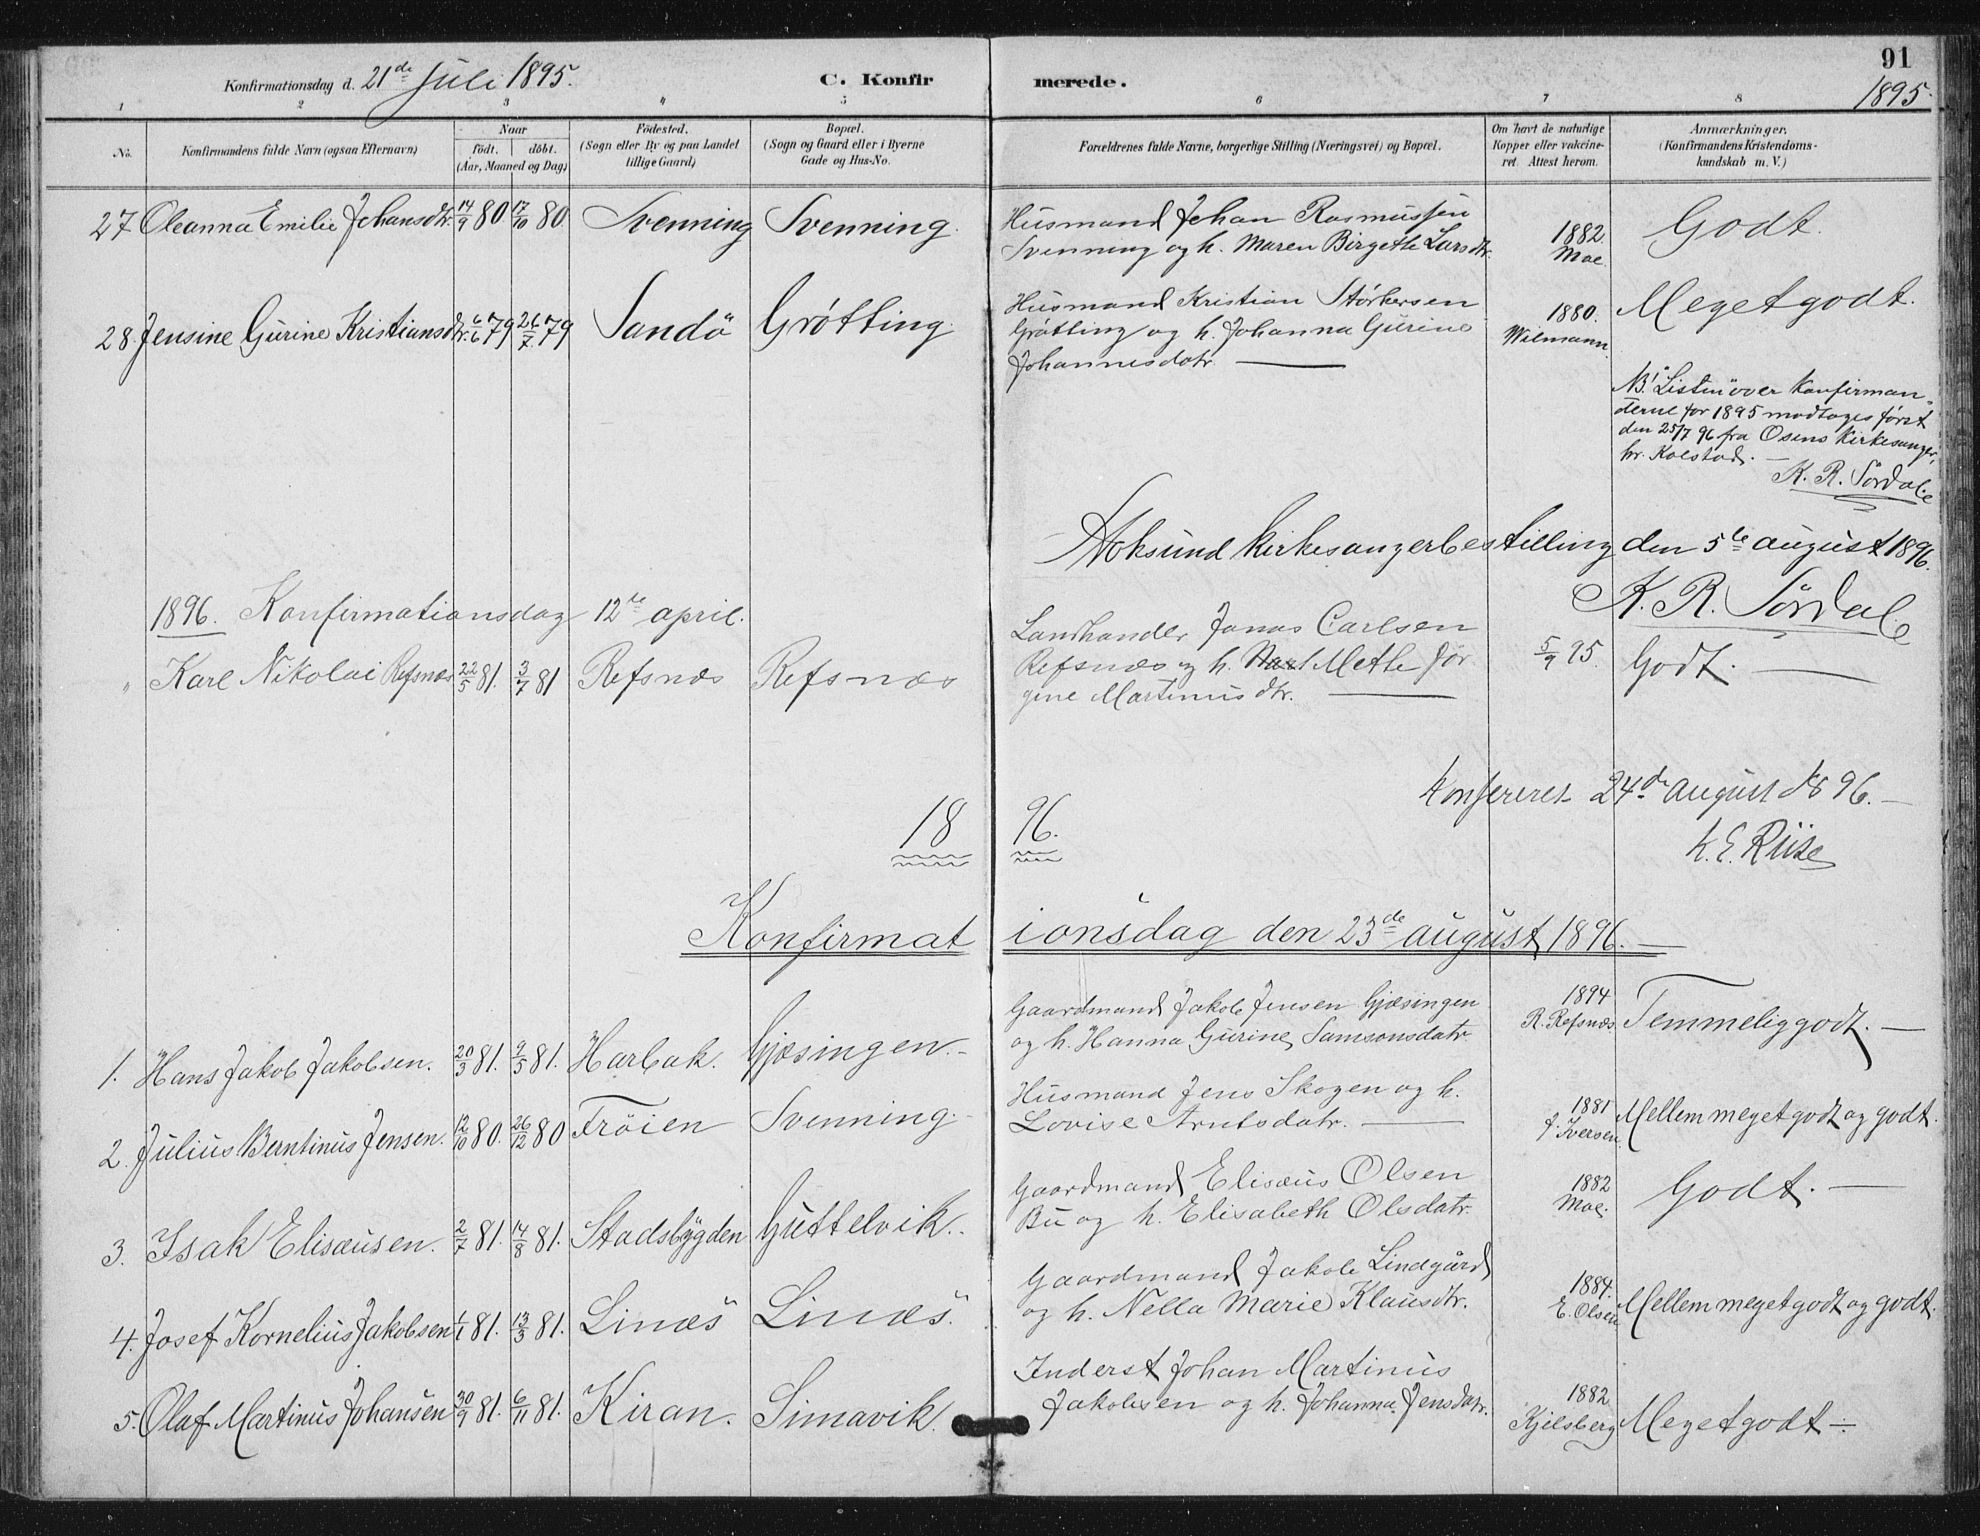 91
Konfirmationsdag d. 21de Juli 1895. C. Konfirmerede. 1895.
1 2 3 4 5 6 7 8
No.
Konfirmandens fulde Navn (ogsaa Efternavn)
Naar
födt. döbt.
(Aar, Maaned og Dag)
Födested.
(Sogn eller By og paa Landet
tillige Gaard)
Bopæl.
(Sogn og Gaard eller i Byerne
Gade og Hus-No.
Forældrenes fulde Navne, borgerlige Stilling (Næringsvei) og Bopæl.
Om havt de naturlige
Kopper eller vaccine-
ret. Attest herom.
Anmærkninger.
(Konfirmandens Kristendoms-
kundskab m. V.)
27 Oleanna Emilie Johansdtr. 14/9 80 17/10 80. Svenning Svenning.
Husmand Johan Rasmussen
Svenning og h. Maren Birgethe Larsdtr.
1882.
Moe.
Godt.
28. Jensine Gurine Kristiansdtr. 6/6 79 26/7 79 Sandö Gröttin​g.
Husmand Kristian Störkersen
Grötting og h. Johanna Gurine
Johannesdatr
1880.
Wilmann.
Meget godt.
NB! "Listen" over Konfirman-
derne for 1895 modtoges först
den 25/7 96 fra Osens Kirkesanger,
hr. Kolstad. —
K. R. Sördal
Stoksund Kirkesangerbestilling den 5te august 1896.
K. R. Sördal
1896. Konfirmationsdag 12te april.
" Karl Nikolai Refsnæs 22/5 81. 3/7 81 Refsnæs Refsnæs
Landhandler Jonas Carlsen
Refsnæs og h. Methe Jör-
gine Martinusdtr.
5/9 95.
Godt.
Konfereret 24de august 1896. —
K. E. Riise
1896.
Konfirmationsdag den 23de august 1896. —
1. Hans Jakob Jakobsen. 20/3 81. 9/5 81. Harbak. Gjæsingen. -
Gaardmand Jakob Jensen Gjæsingen
og h. Hanna Gurine Samsonsdatr
1894
R. Refsnæs
Temmelig godt. —
2. Julius Berntinus Jensen. 12/10 80. 26/12 80 Fröien Svenning. -
Husmand Jens Skogen og h.
Lovise Arntsdatr.
1881
J. Iversen.
Mellem meget godt og godt.
3. Isak Elisæusen. 2/7 81. 14/8 81. Stadsbygden Guttelvik.
Gaardmand Elisæus Olsen
Bu og h. Elisabeth Olsdatr.
1882
Moe.
Godt. —
4. Josef Kornelius Jakobsen 1/1 81. 13/3 81. Linæs Linæs.
Gaardmand Jakob Lindgård
og h. Nella Marie Klausdtr.
1884.
E. Olsen
Mellem meget godt og godt.
5. Olaf Martinus Johansen 30/9 81. 6/11 81. Kiran. Simavik.
Inderst Johan Martinus
Jakobsen og h. Johanna Jensdatr.
1882
Kjelsberg
Meget godt